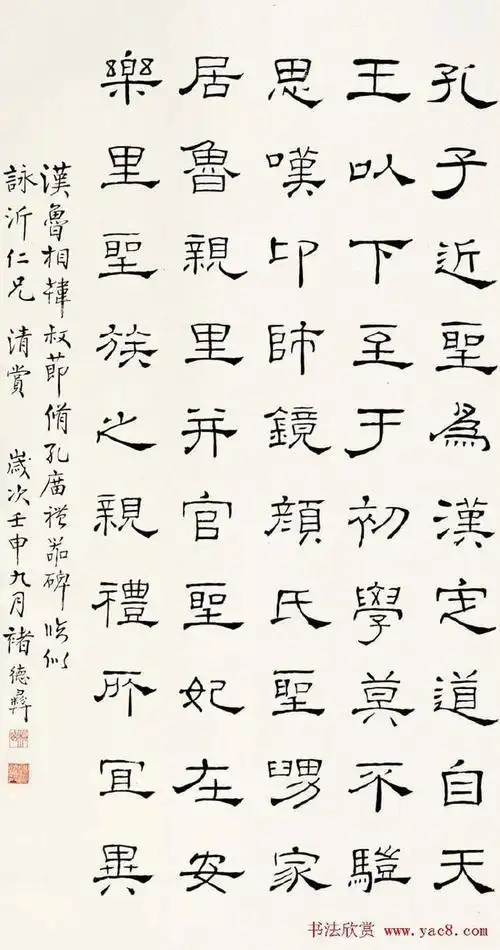 孔子近聖爲漢定道自天
王以下至于初學莫不䮗
思嘆卬師鏡顏氏聖舅家
居魯親里并官聖妃在安
樂里聖族之親禮所宜異
漢魯相韓叔節脩孔廟禮器碑 臨似
詠沂仁兄 清賞 歲次壬申九月褚德彝
书法欣赏 www.yac8.com